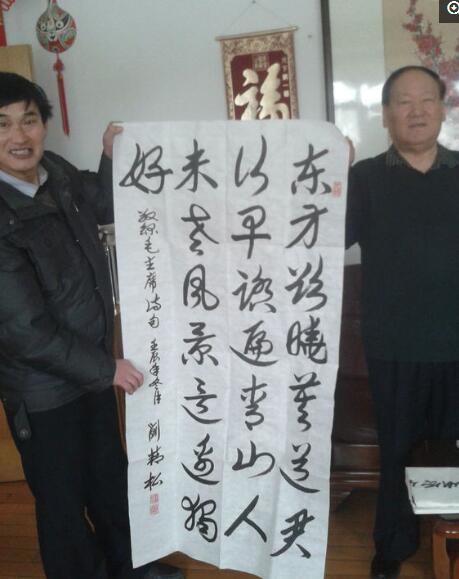 东方欲晓莫道君
行早踏遍青山人
未老风景这边独
好
敬录毛主席诗句 壬辰年冬月 劉精松
福